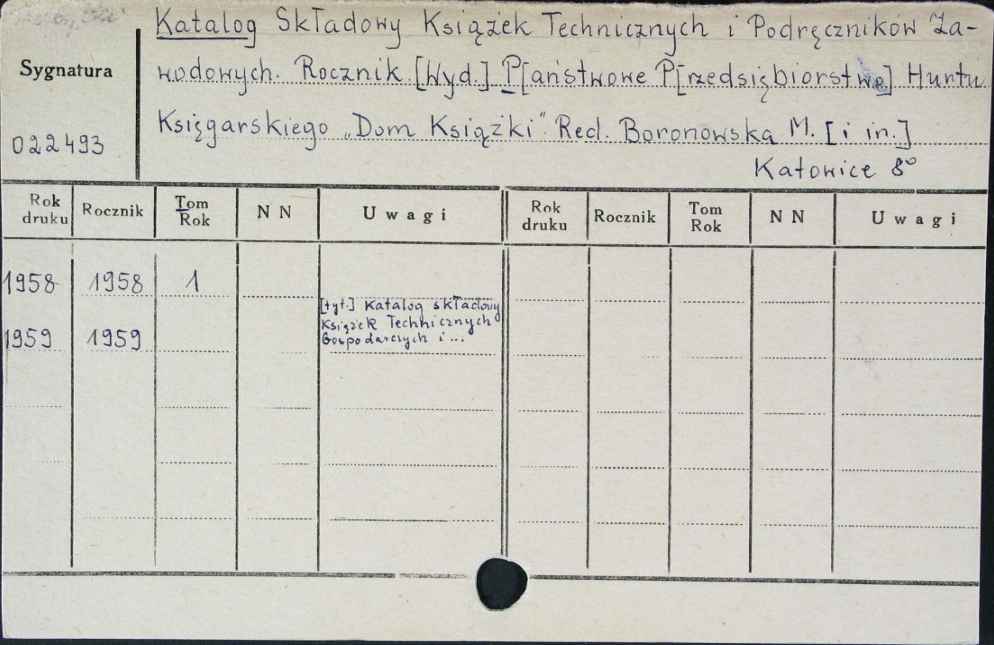 Katalog Składowy Książek Technicznych i Podręczników Za-
Sygnatura
wodowych. Rocznik [Wyd.] P[aństwowe P[rzedsiębiorstwo] Hurtu
022493
Księgarskiego „Dom Książki". Red. Boronowska M. [i in.]
Katowice 8°
Rok druku Rocznik Tom Rok N N Uwagi Rok druku Rocznik Tom Rok N N Uwagi
1958 1958 1
[tyt.] Katalog składowy
Książek Technicznych
1959 1959 Gospodarczych i ...